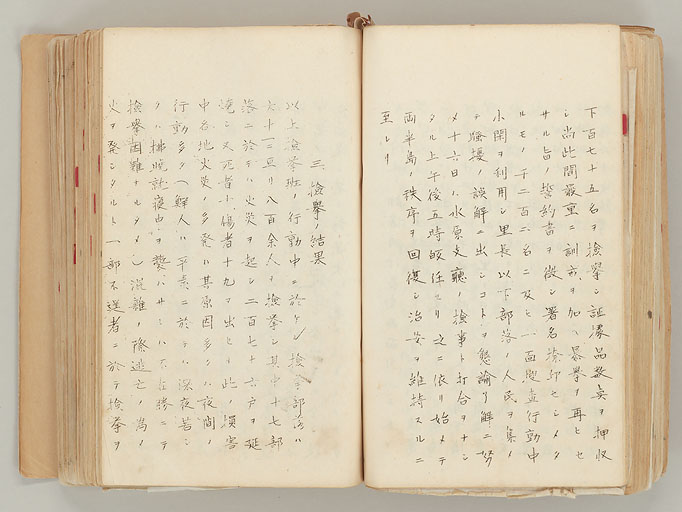 下百七十五名ヲ検挙シ証憑品数点ヲ押収
シ尚此間厳重ニ訓戒ヲ加ヘ暴挙ヲ再ヒセ
サル旨ノ誓約書ヲ徴シ署名捺印セシメタ
ルモノ千二百二名ニ及ヒ一面思査行動中
小閑ヲ利用シ里長以下部落ノ人民ヲ集メ
テ騒擾ノ誤解ニ出シコトヲ懇諭シ解ニ努
メ十六日ハ水原支庁ノ検事ト打合ヲナシ
タル上午後五時帰任セリ之ニ依リ始メテ
両半島ノ秩序ヲ回復シ治安ヲ維持スルニ
至レリ
三、検挙ノ結果
以上検挙班ノ行動中ニ於ケル検挙部落ハ
六十三ニ亘リ八百余人ヲ検挙シ其中十七部
落ニ於テハ火災ヲ起シ二百七十六戸ヲ延
焼シ又死者傷者十九ヲ出セリ此ノ損害
中各地火災ノ多発ハ其原因多クハ夜間ノ
行動多ク（鮮人ハ平素ニ於テハ深夜若シ
クハ拂暁就寝中ヲ襲ハサレハ不在勝ニテ
検挙困難ナルタメ）混雑ノ際逃亡ノ為メ
火ヲ発シタルト一部不逞者ニ於テ検挙ヲ